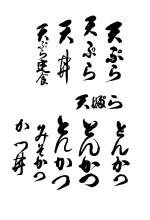 天ぷら
天ぷら
天丼
天ぷら定食
天婦ら
とんかつ
とんかつ
とんかつ
みそかつ
かつ丼